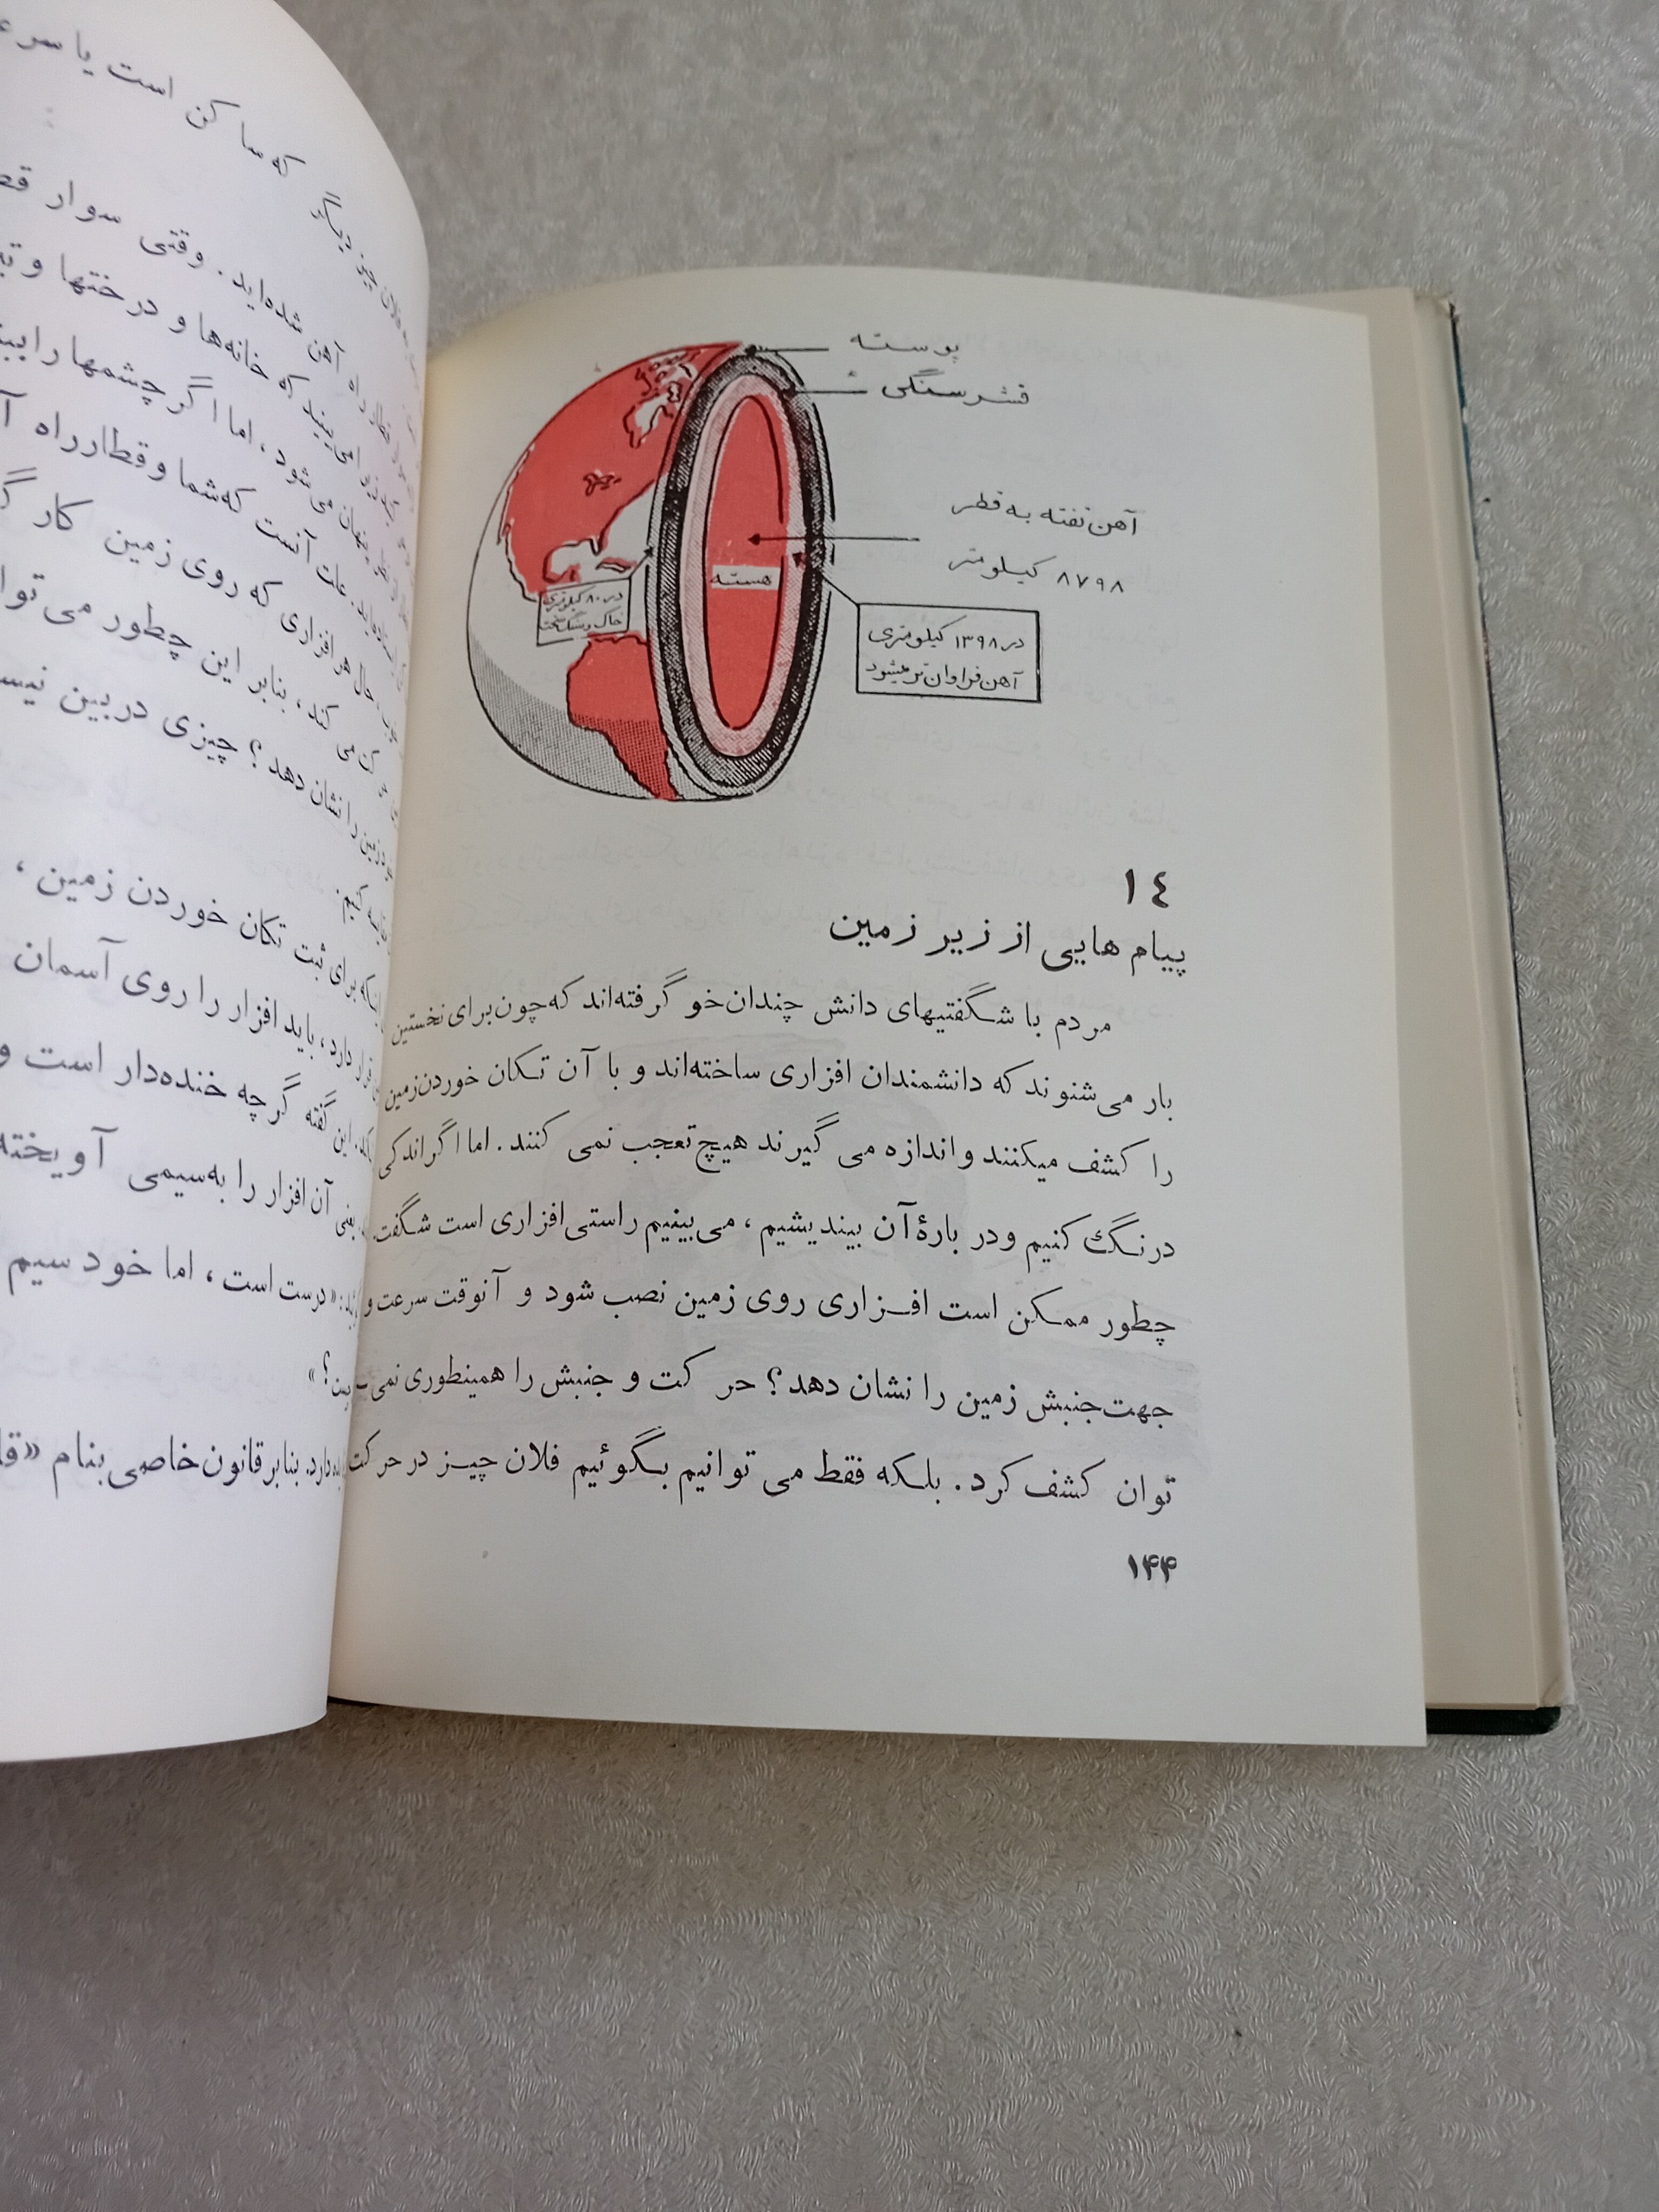 پوسته
قشر سنگی
آهن تفته به قطر
۸۷۹۸ کیلومتر
هسته
در ۸۰ کیلومتری
خاک و سنگ سخت
در ۱۳۹۸ کیلومتری
آهن فراوان تر میشود
۱٤
پیام هایی از زیر زمین
مردم با شگفتیهای دانش چندان خو گرفته‌اند که چون برای نخستین
بار می‌شنوند که دانشمندان افزاری ساخته‌اند و با آن تکان خوردن زمین
را کشف میکنند و اندازه می گیرند هیچ تعجب نمی کنند. اما اگر اندکی
درنگ کنیم و در بارهٔ آن بیندیشیم، می‌بینیم راستی افزاری است شگفت.
چطور ممکن است افزاری روی زمین نصب شود و آنوقت سرعت و
جهت جنبش زمین را نشان دهد؟ حرکت و جنبش را همینطوری نمی‌
توان کشف کرد. بلکه فقط می توانیم بگوئیم فلان چیز در حرکت
۱۴۴
فلان چیز دیگر که ساکن است یا
راه آهن شده‌اید. وقتی سوار
می‌بینید که خانه‌ها و درختها و
پنهان می‌شود، اما اگر چشمها را
علت آنست که شما و قطار راه
حال هر افزاری که روی زمین کار
می کند، بنابر این چطور می
زمین را نشان دهد؟ چیزی در بین
کنیم.
برای ثبت تکان خوردن زمین،
دارد، باید افزار را روی آسمان
این گفته گرچه خنده‌دار است و
یعنی آن افزار را به سیمی آویخته
«درست است، اما خود سیم
؟»
دارد. بنابر قانون خاصی بنام